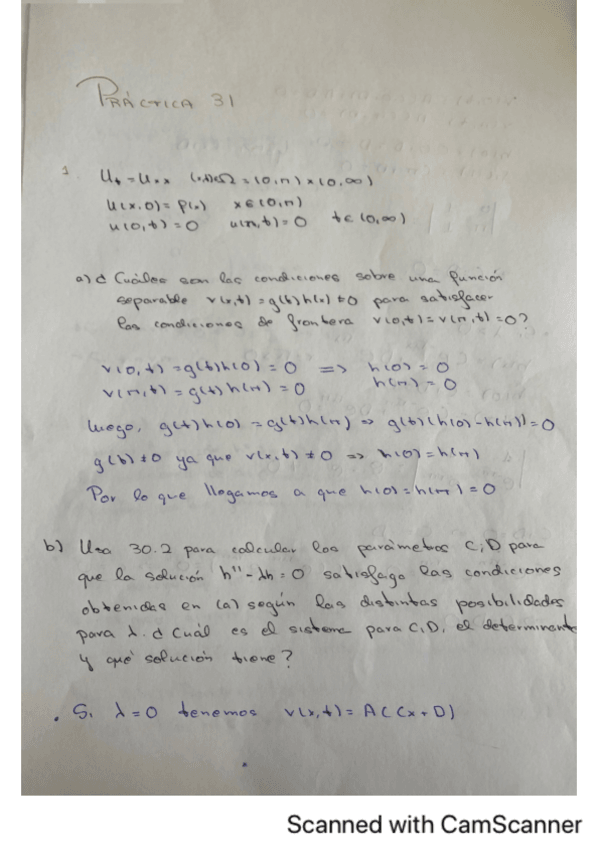 PRÁCTICA 31
1 u_t = u_xx (x,t)∈Ω = (0,π) × (0,∞)
u(x,0) = f(x) x∈(0,π)
u(0,t) = 0 u(π,t) = 0 t∈(0,∞)
a) ¿Cuáles son las condiciones sobre una función
separable v(x,t) = g(t)h(x) ≠ 0 para satisfacer
las condiciones de frontera v(0,t) = v(π,t) = 0?
v(0,t) = g(t)h(0) = 0 => h(0) = 0
v(π,t) = g(t)h(π) = 0 h(π) = 0
Luego, g(t)h(0) = g(t)h(π) => g(t)(h(0)-h(π)) = 0
g(t) ≠ 0 ya que v(x,t) ≠ 0 => h(0) = h(π)
Por lo que llegamos a que h(0) = h(π) = 0
b) Usa 30.2 para calcular los parámetros C,D para
que la solución h'' - λh = 0 satisfaga las condiciones
obtenidas en (a) según las distintas posibilidades
para λ. ¿Cuál es el sistema para C,D, el determinante
y qué solución tiene?
. Si λ = 0 tenemos v(x,t) = A(Cx + D)
Scanned with CamScanner